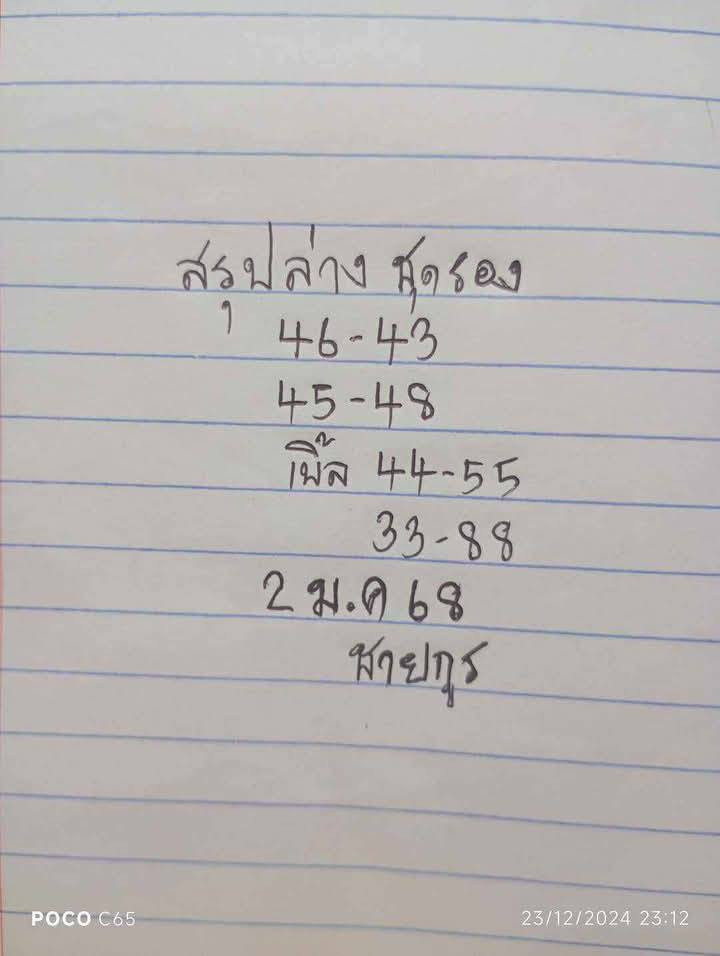 สรุปล่าง ชุดรอง
46-43
45-48
เบิ๊ล 44-55
33-88
2 ม.ค 68
ชายกูร
POCO C65
23/12/2024 23:12